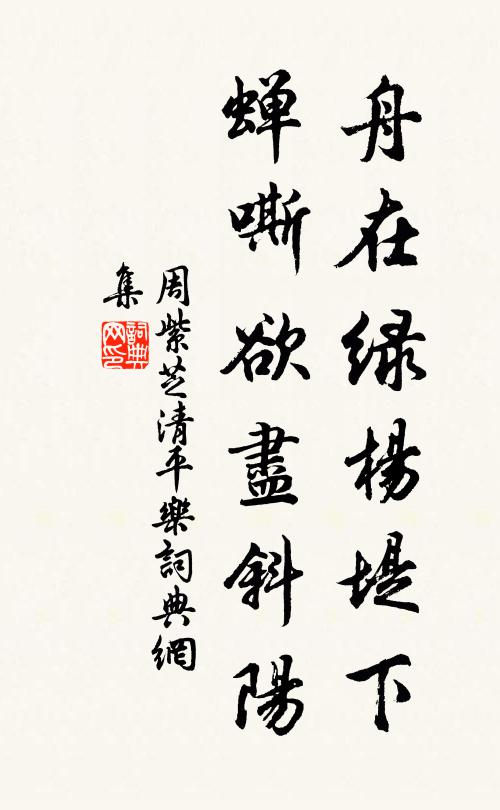 舟在绿楊堤下
蝉嘶欲盡斜陽
周紫芝清平樂詞典網
集
詞典網印